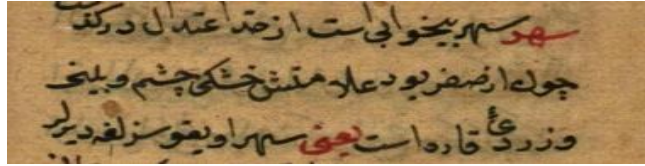 سهر سهر بیخوابی است از حد اعتدال در کذ
چون از صفر بود علامتش خشکی چشم و بینی
و زردی قاروه است یعنی سهر او یقوسز لغه دیرلر